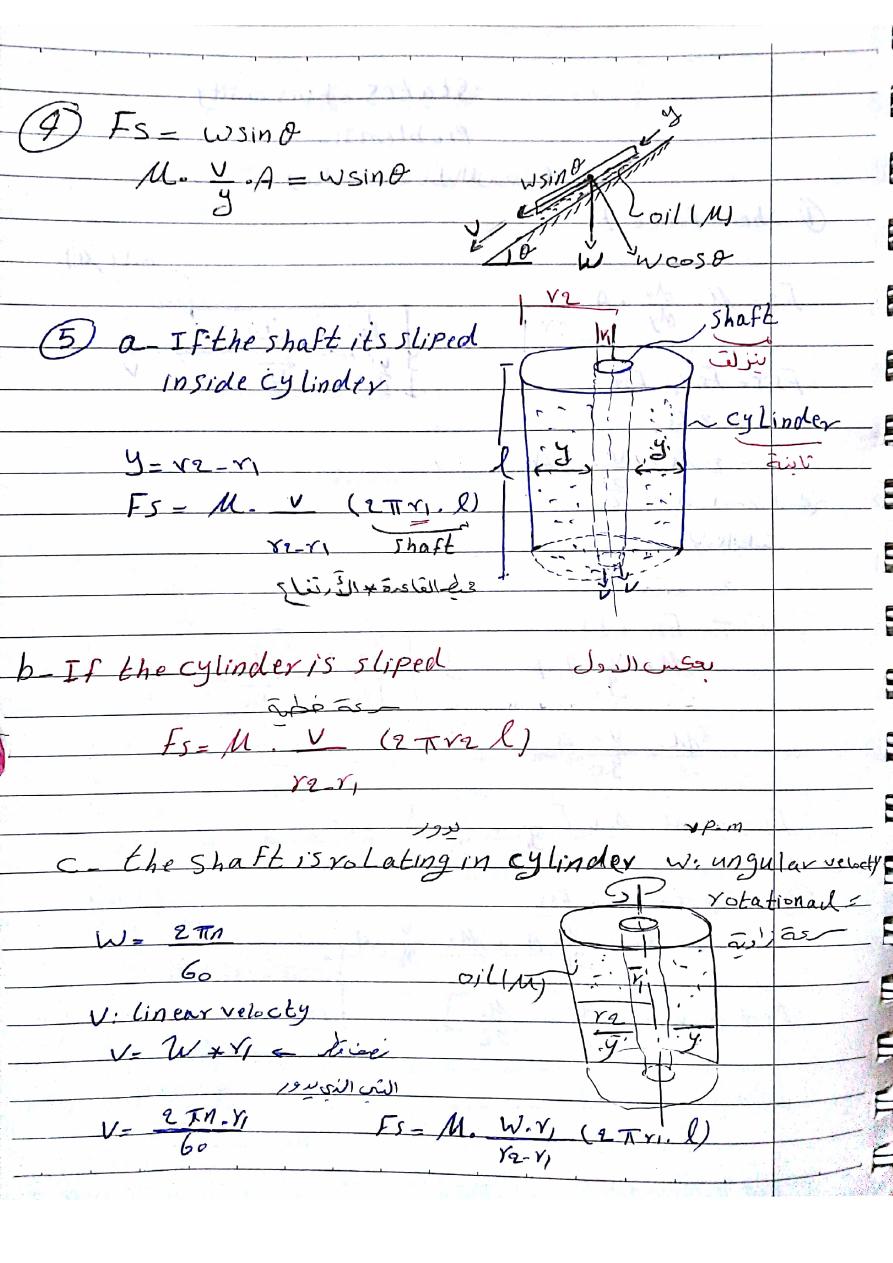 ④ Fs = wsinθ
M. v/y .A = wsinθ
y
wsinθ
oil (M)
v
θ
W
Wcosθ
⑤ a- If the shaft its sliped
inside cylinder
r2
r1
shaft
ينزلق
cylinder
ثابتة
l
y
y
y = r2 - r1
Fs = M. v/r2-r1 (2πr1. l)
shaft
محيط القاعدة * الأرتفاع
v v
b- If the cylinder is sliped
سرعة خطية
Fs = M . v/r2-r1 (2πr2 l)
يدور
r.p.m
c- the shaft is rolating in cylinder w: ungular velocty
rotational =
سرعة زاوية
W = 2πn/60
oil (M)
r1
r2
y
y
V: linear velocty
V = W * r1 ←
التي الذي يدور
V = 2πn.r1/60
Fs = M. W.r1/r2-r1 (2πr1. l)